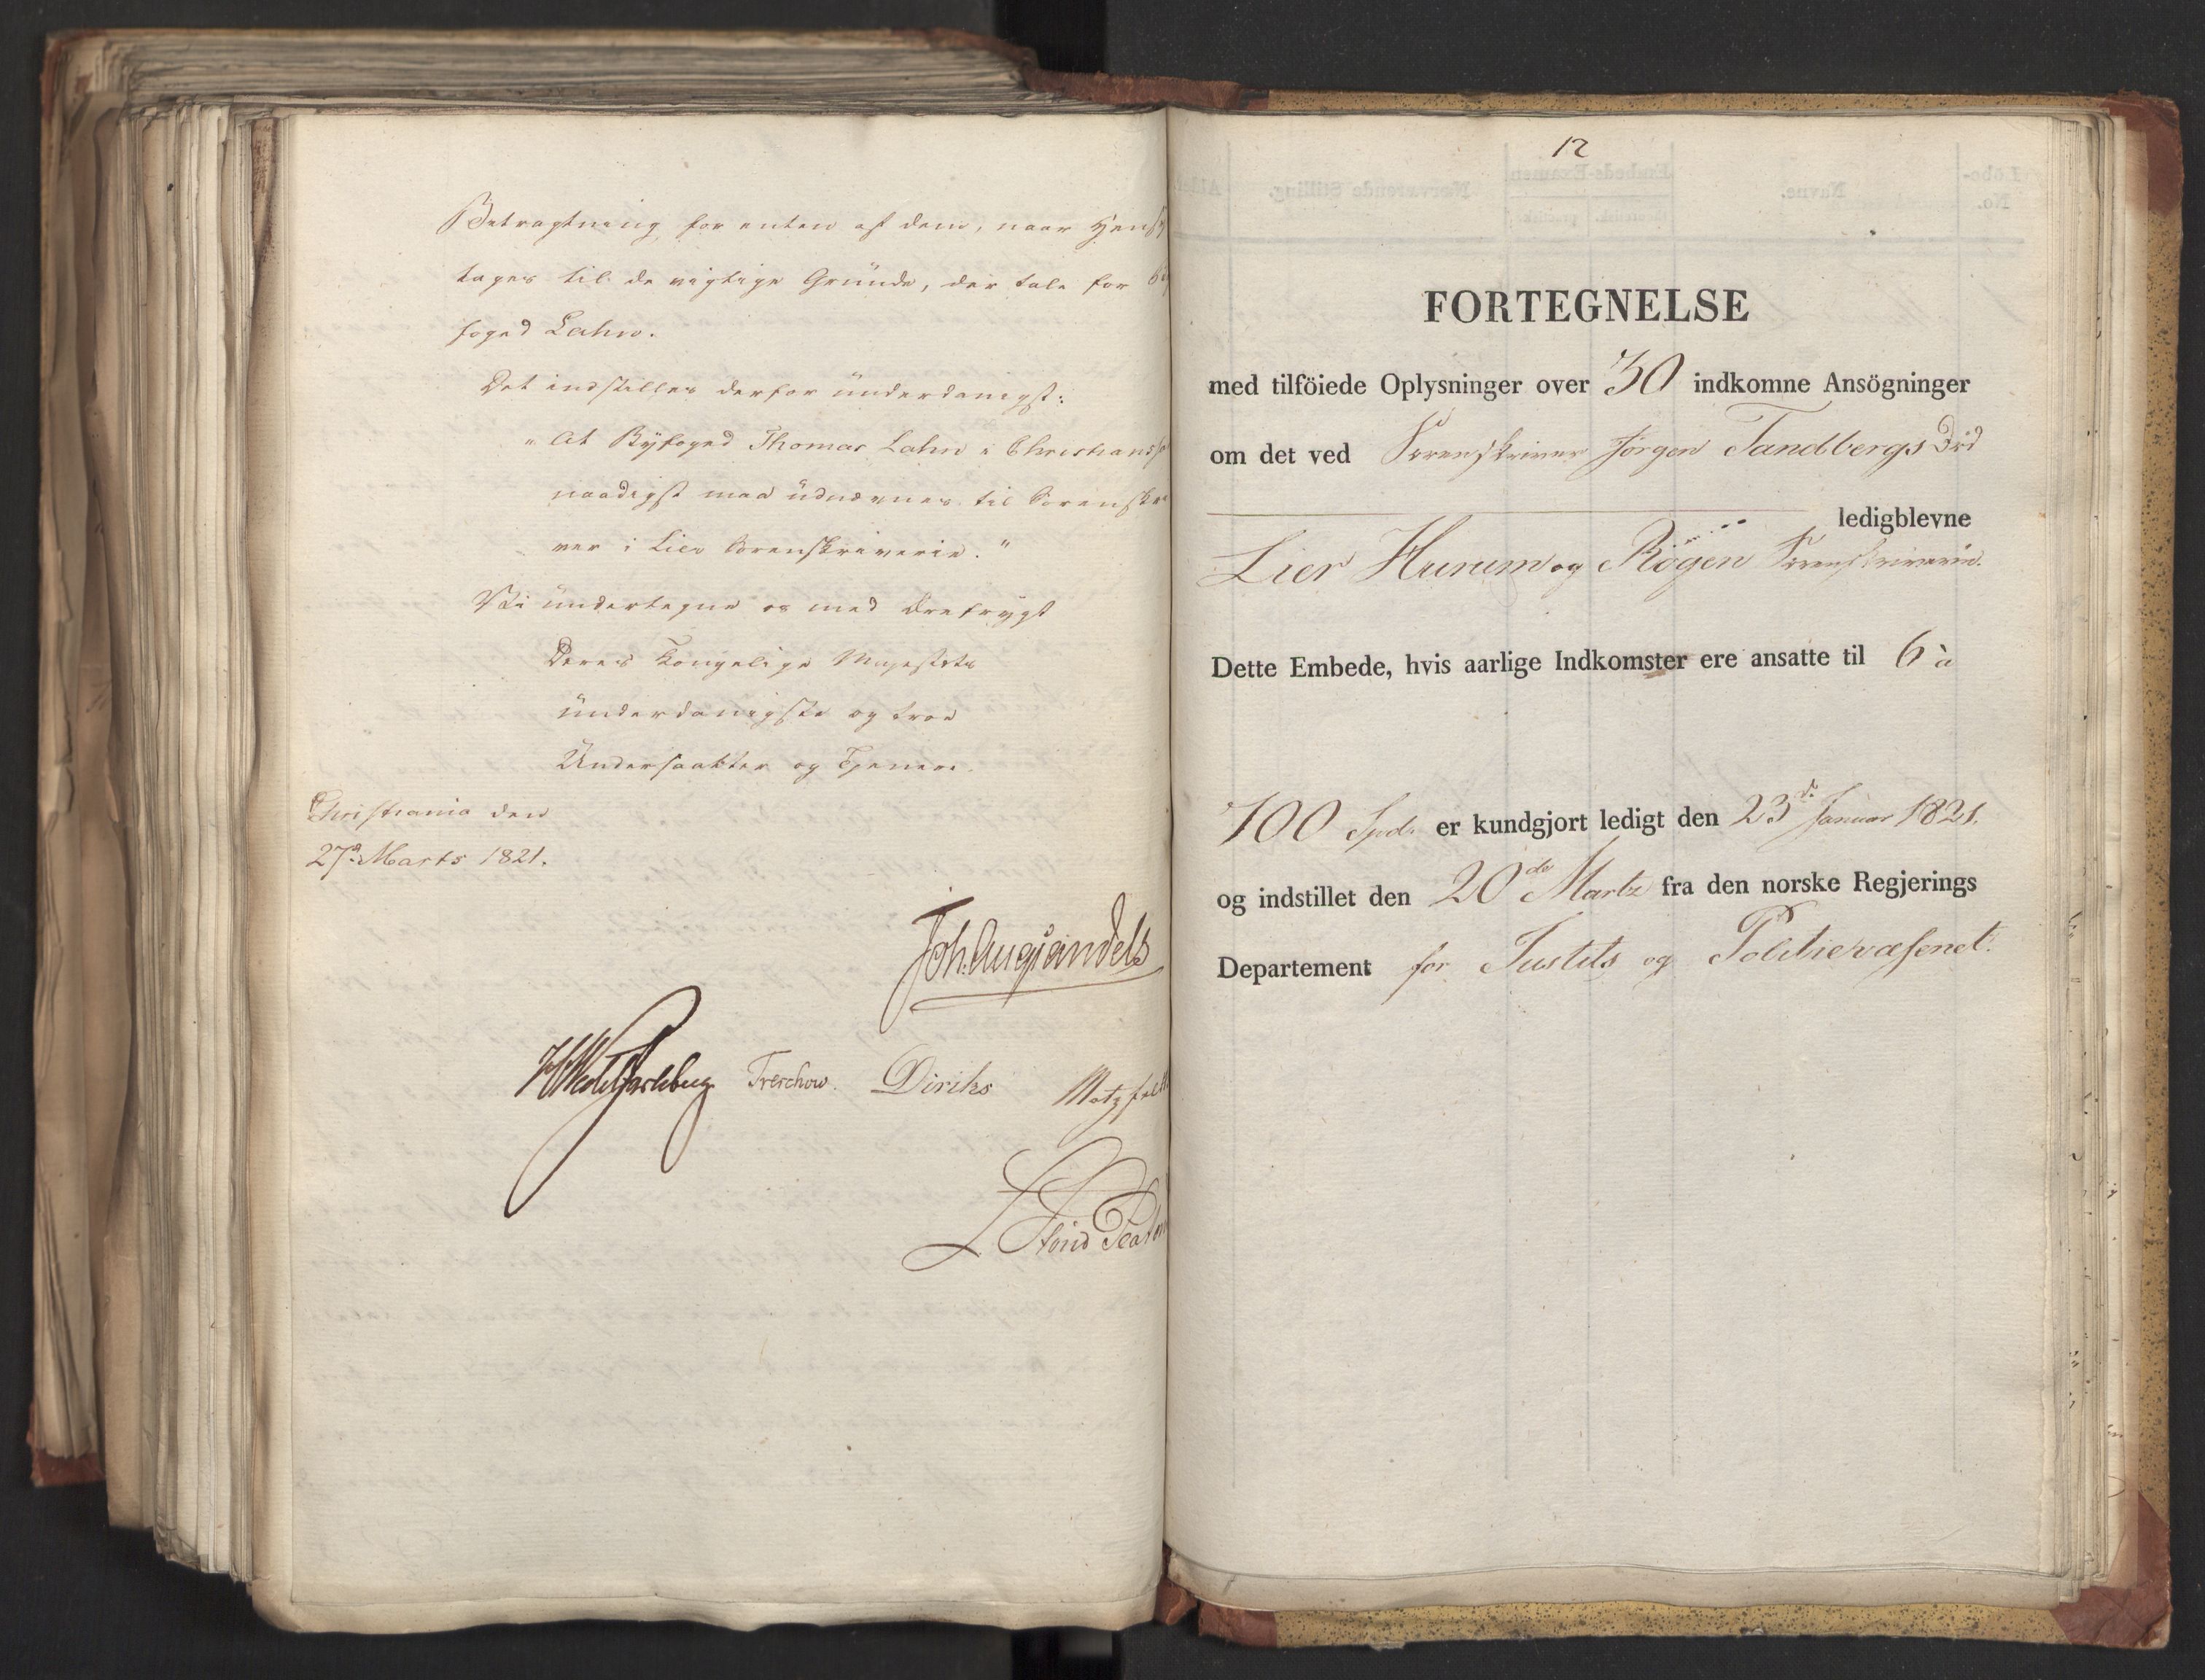 Betragtning for enten af dem, naar Hens
tages til de vigtige Gründe, der tale for By
foged Lahn.
Det indstilles derfor ünderdanigst:
"At Byfoged Thomas Lahn i Christians
naadigst maa üdnævnes til Sorenskri
ver i Lier Sorenskriverie."
Vi ündertegne os med Ærefrygt
Deres Kongelige Majestæts
ünderdanigste og troe
Undersaatter og Tjenere.
Christiania den
27d Marts 1821.
Joh. Aug. Sandels
HWedel Jarlsberg Treschow. Diriks Motzfeldt
L
12
FORTEGNELSE
med tilföiede Oplysninger over 30 indkomne Ansögninger
om det ved Sorenskriver Jørgen Tandbergs Död
ledigblevne
Lier Hurum og Rögen Sorenskriverie.
Dette Embede, hvis aarlige Indkomster ere ansatte til 6 à
700 Spd. er kundgjort ledigt den 23de Januar 1821.
og indstillet den 20de Martz fra den norske Regjerings
Departement for Justits og Politievæsenet.